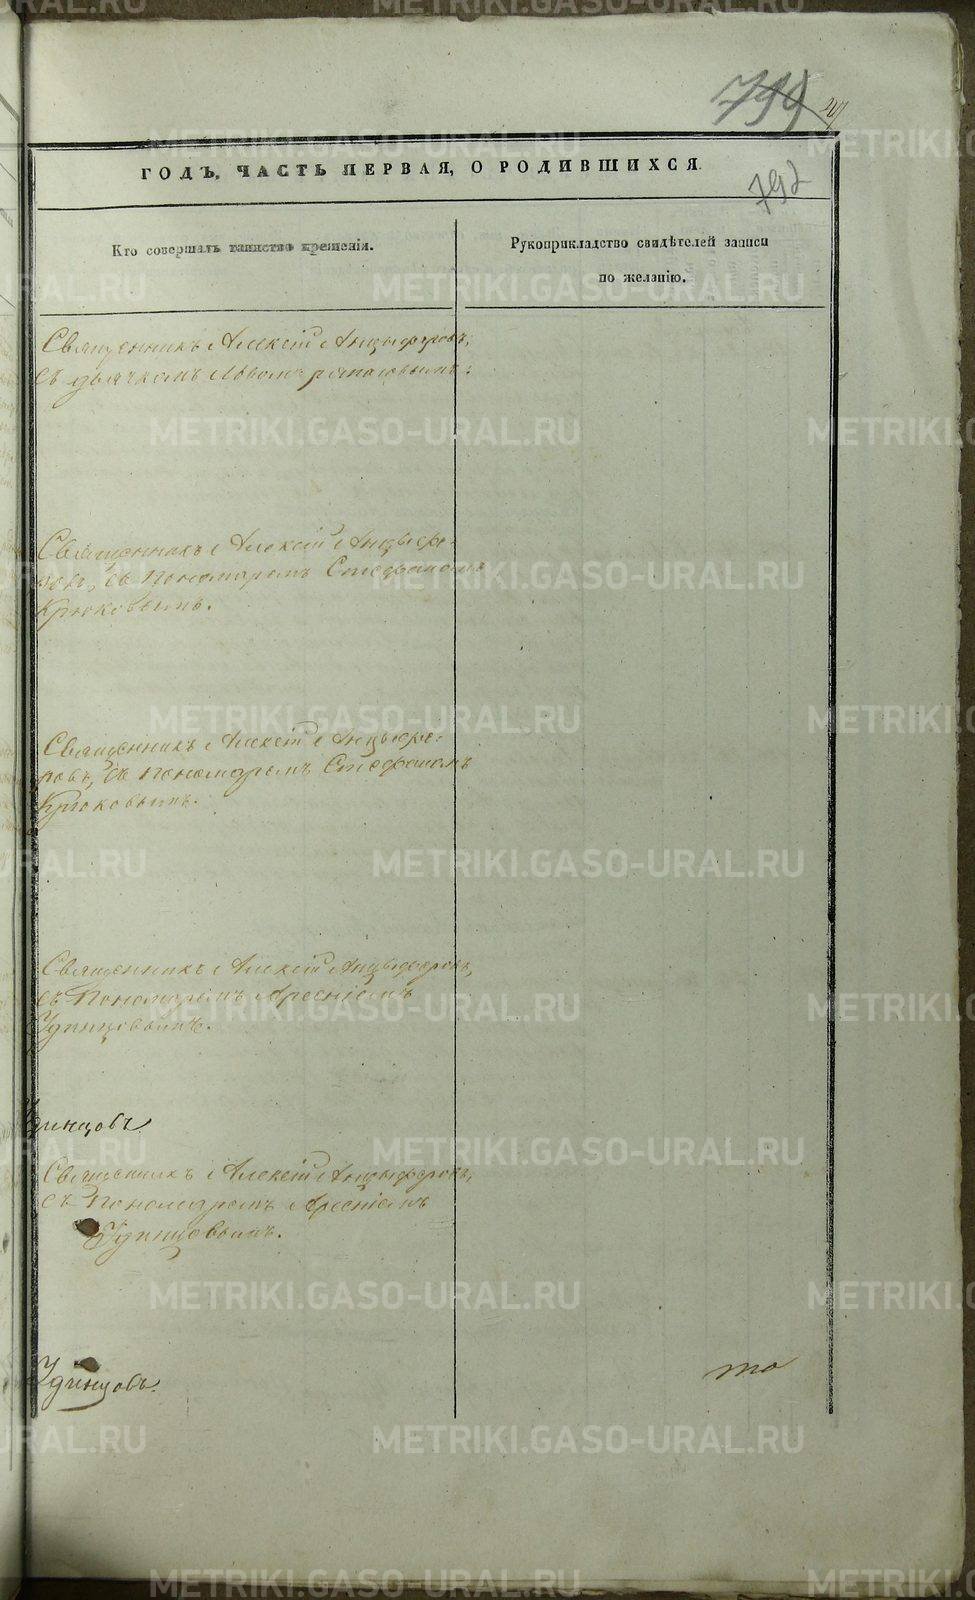 799
792
ГОДЪ, ЧАСТЬ ПЕРВАЯ, О РОДИВШИХСЯ.
Кто совершалъ таинство крещенія.
Рукоприкладство свидѣтелей записи
по желанію.
Священникъ Алексій Анцыферовъ,
съ дьячкомъ Львомъ
Священникъ Алексій Анцыфе-
ровъ, съ Пономаремъ Стефаномъ
Крюковымъ.
Священникъ Алексій Анцыфе-
ровъ, съ Пономаремъ Стефаномъ
Крюковымъ.
Священникъ Алексій Анцыферовъ,
съ Пономаремъ Арсеніемъ
Удинцовымъ.
Удинцовъ
Священникъ Алексій Анцыферовъ,
съ Пономаремъ Арсеніемъ
Удинцовымъ.
Удинцовъ.
то
METRIKI.GASO-URAL.RU